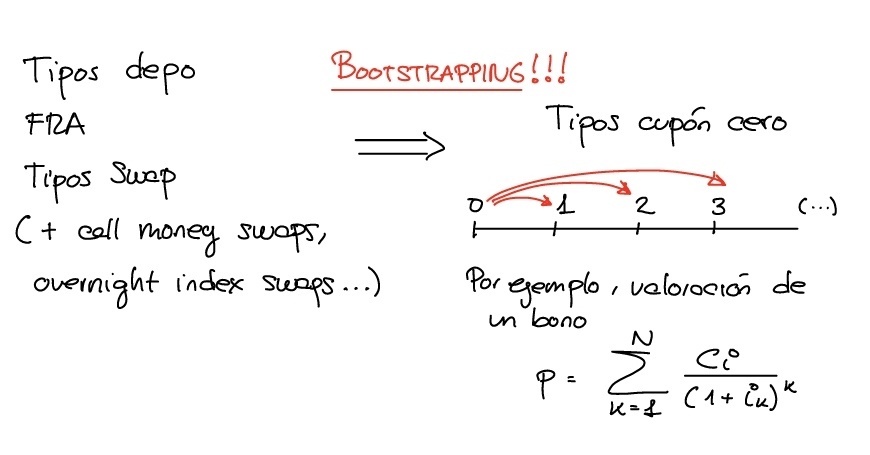 Tipos depo
FRA
Tipos Swap
(+ call money swaps,
overnight index swaps...)
BOOTSTRAPPING!!!
Tipos cupón cero
0 1 2 3 (...)
Por ejemplo, valoración de
un bono
P = N ∑ k=1 Ci / (1 + ik)^k